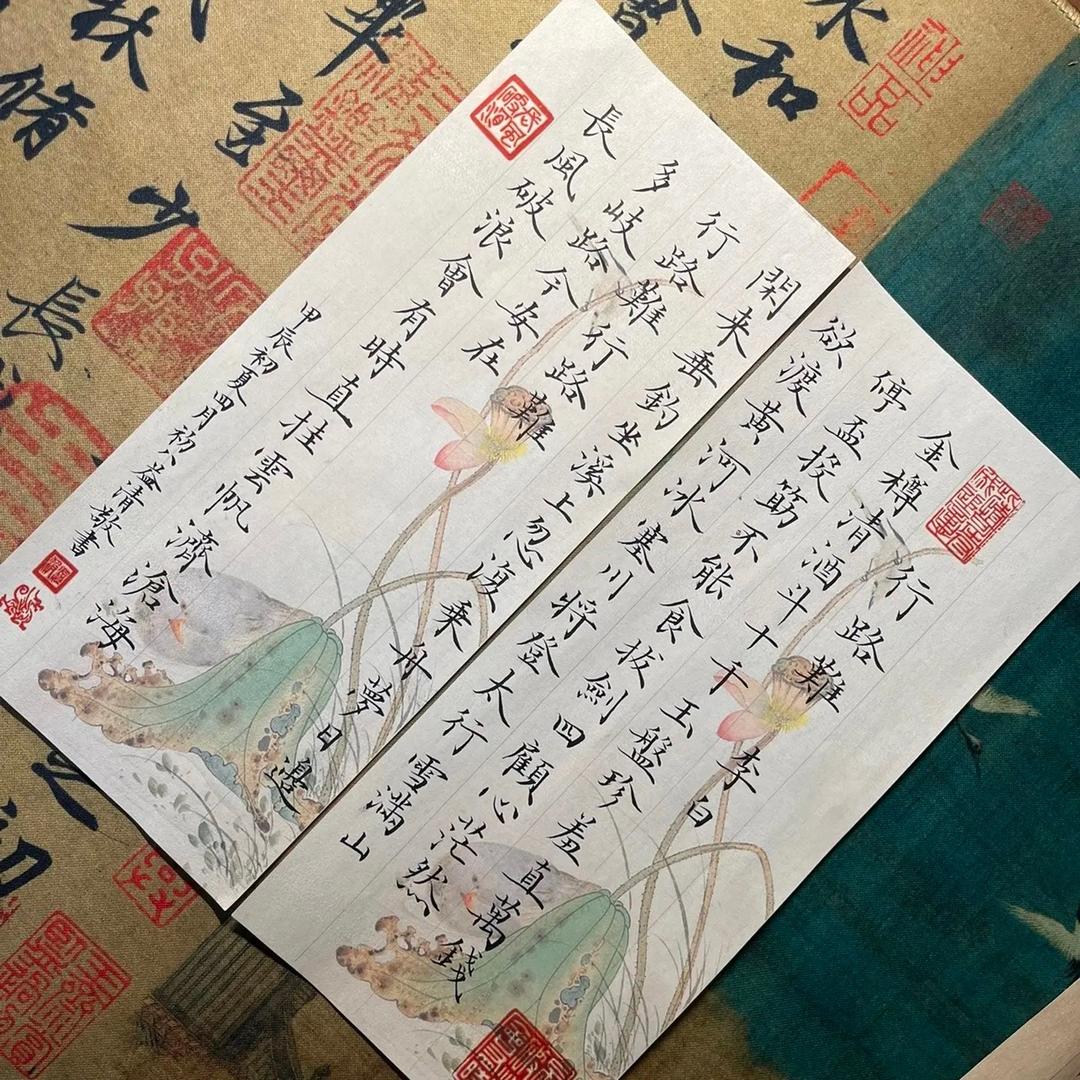 行路難 李白
金樽清酒斗十千玉盤珍羞直萬錢
停盃投筯不能食拔劍四顧心茫然
欲渡黃河冰塞川將登太行雪満山
閑来垂釣坐溪上忽復乘舟夢日邊
行路難行路難
多岐路今安在
長風破浪會有時直挂雲帆濟滄海
甲辰初夏四月初八益清敬書
和
畢至少長
林脩
初